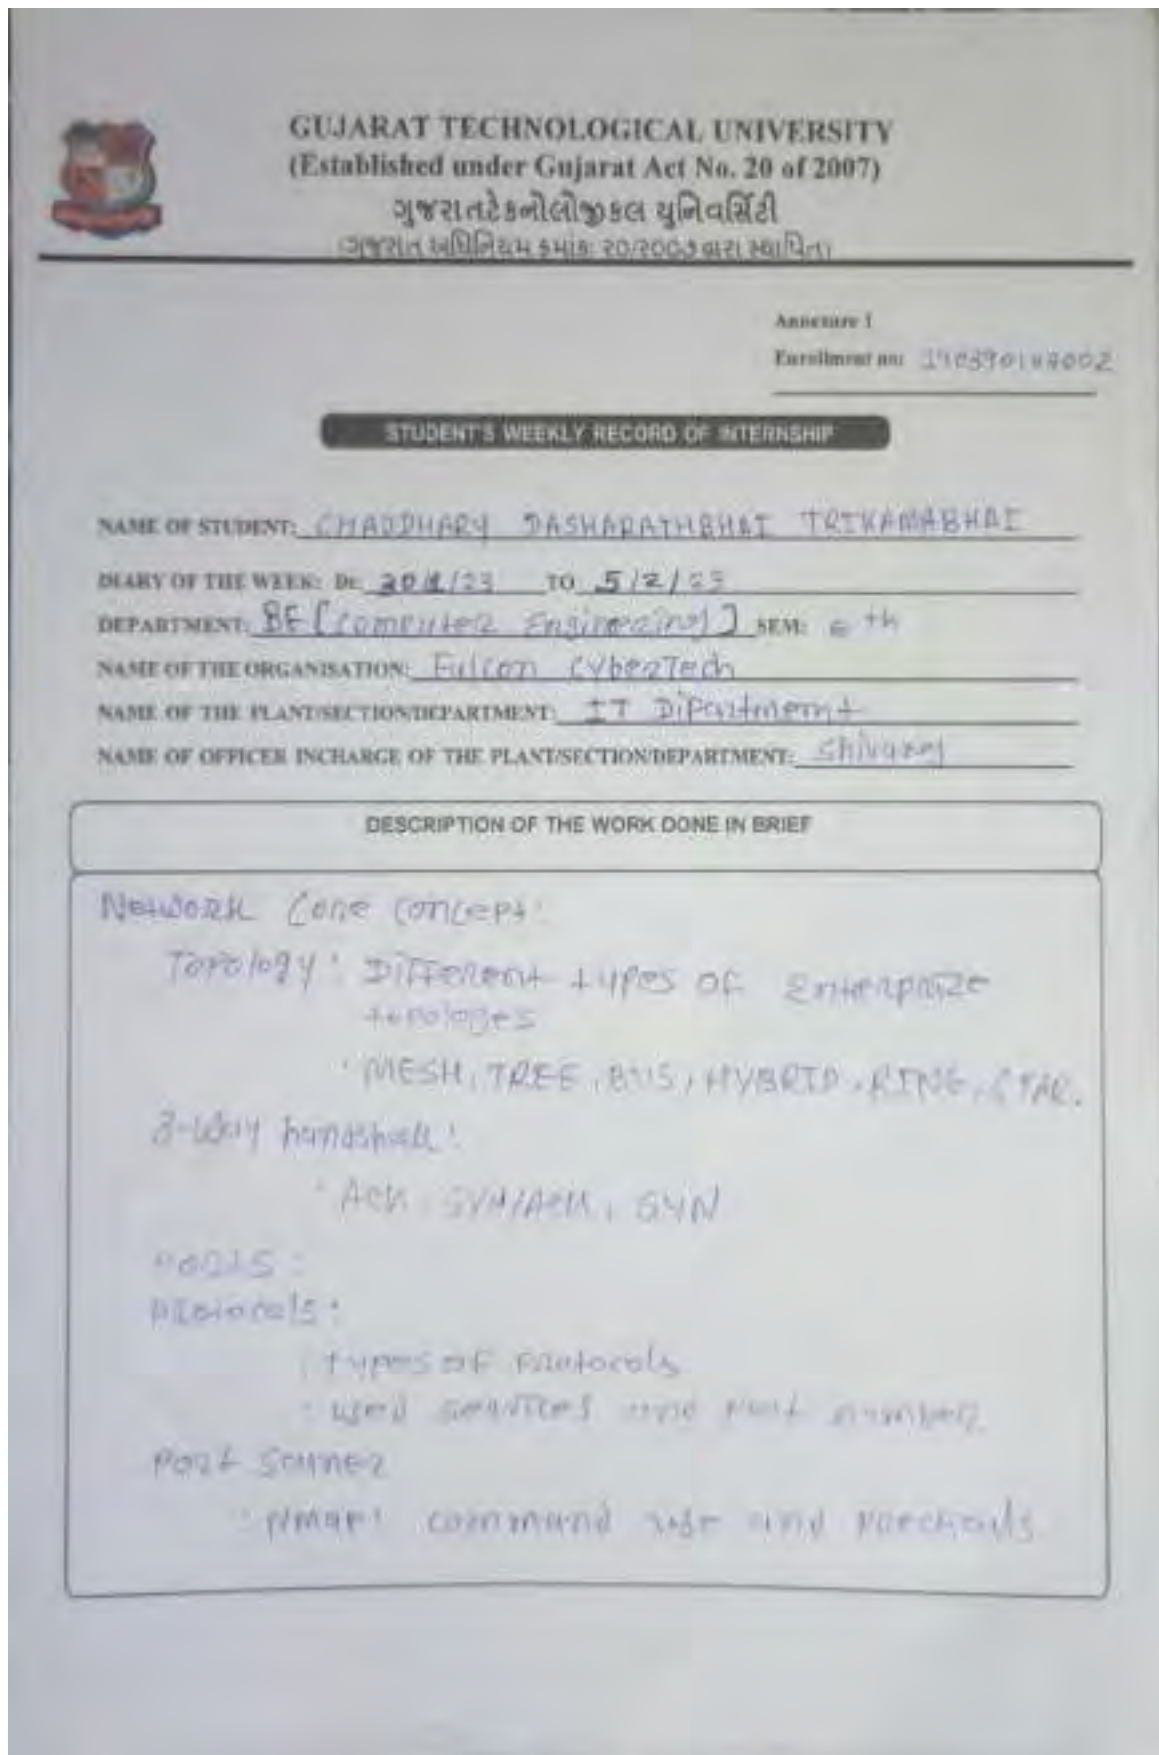 GUJARAT TECHNOLOGICAL UNIVERSITY
(Established under Gujarat Act No. 20 of 2007)
ગુજરાતટેકનોલોજીકલ યુનિવર્સિટી
(ગુજરાત અધિનિયમ ક્રમાંક: ૨૦/૨૦૦૭ દ્વારા સ્થાપિત)
Annexure 1
Enrollment no:
STUDENT'S WEEKLY RECORD OF INTERNSHIP
NAME OF STUDENT: CHAUDHARY DASHARATHBHAI TRIKAMABHAI
DIARY OF THE WEEK: Dt: 30/1/23 TO 5/2/23
DEPARTMENT: BE [Computer Engineering] SEM: th
NAME OF THE ORGANISATION: Fulcon CyberTech
NAME OF THE PLANT/SECTION/DEPARTMENT: IT Dipartment
NAME OF OFFICER INCHARGE OF THE PLANT/SECTION/DEPARTMENT: Shivaraj
DESCRIPTION OF THE WORK DONE IN BRIEF
Network Core Concept:
Topology: Different types of Enterprize
topologes
MESH, TREE, BUS, HYBRID, RING, STAR.
3-way handshak:
ACK, SYN/ACK, SYN
Ports:
Protocols:
types of protocols
used services and Port number
Port Scanner
Nmap: command use and